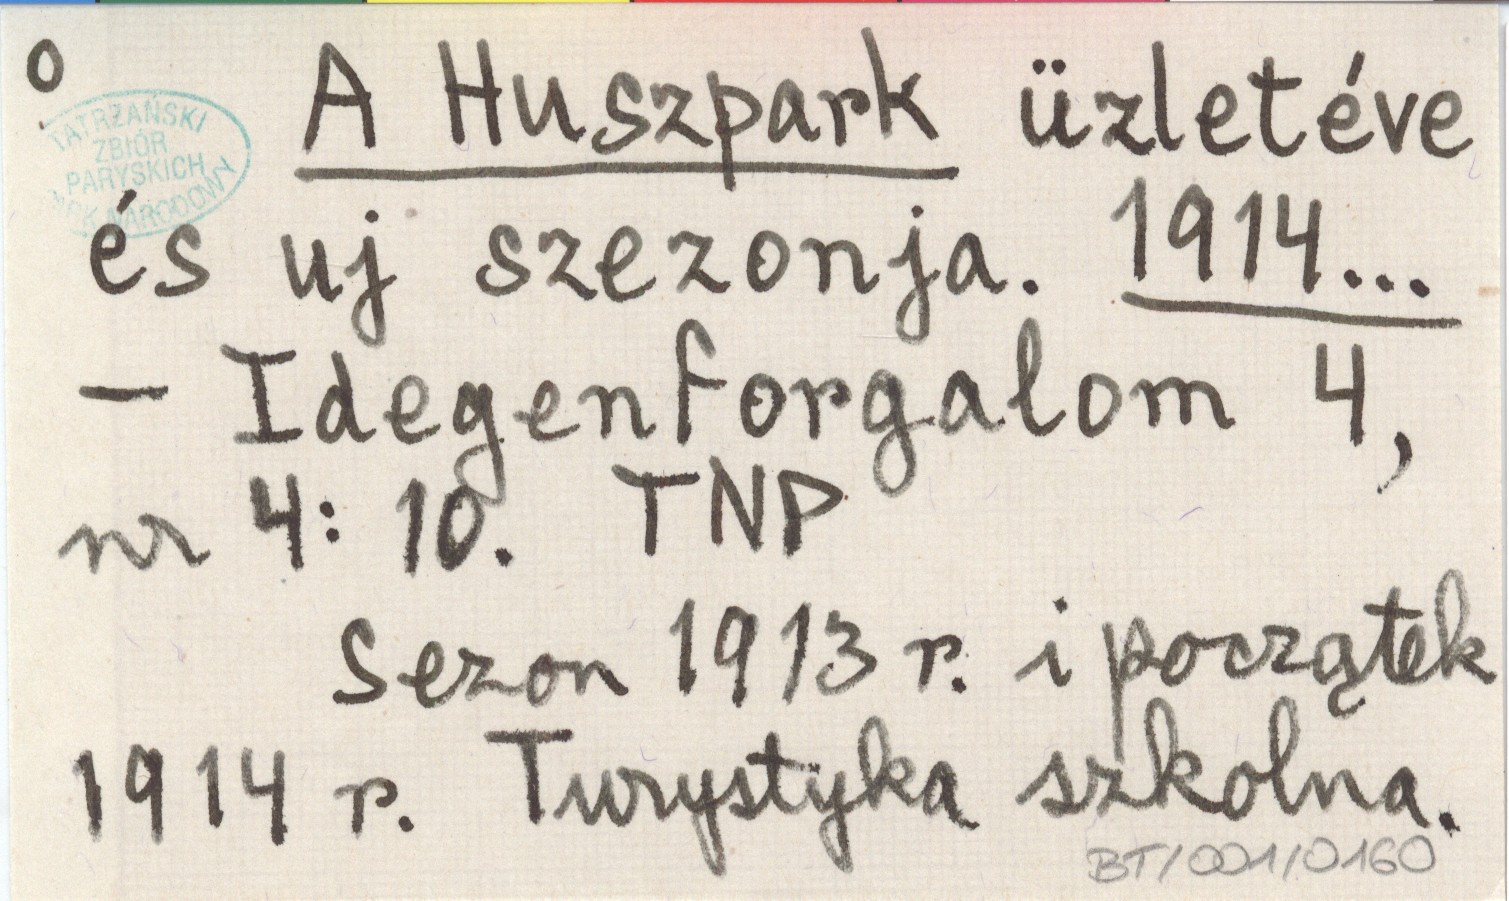 o
TATRZAŃSKI
ZBIÓR
PARYSKICH
PARK NARODOWY
A Huszpark üzletéve
és uj szezonja. 1914...
— Idegenforgalom 4,
nr 4: 10. TNP
Sezon 1913 r. i początek
1914 r. Turystyka szkolna.
BT/001/0160